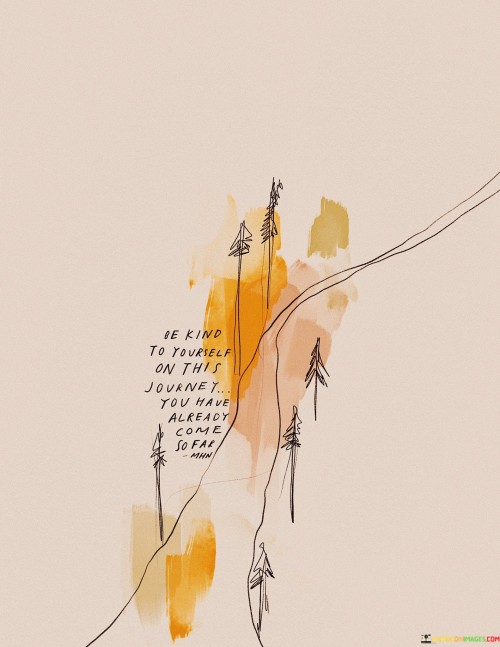 BE KIND
TO YOURSELF
ON THIS
JOURNEY...
YOU HAVE
ALREADY
COME
SO FAR
-MHN